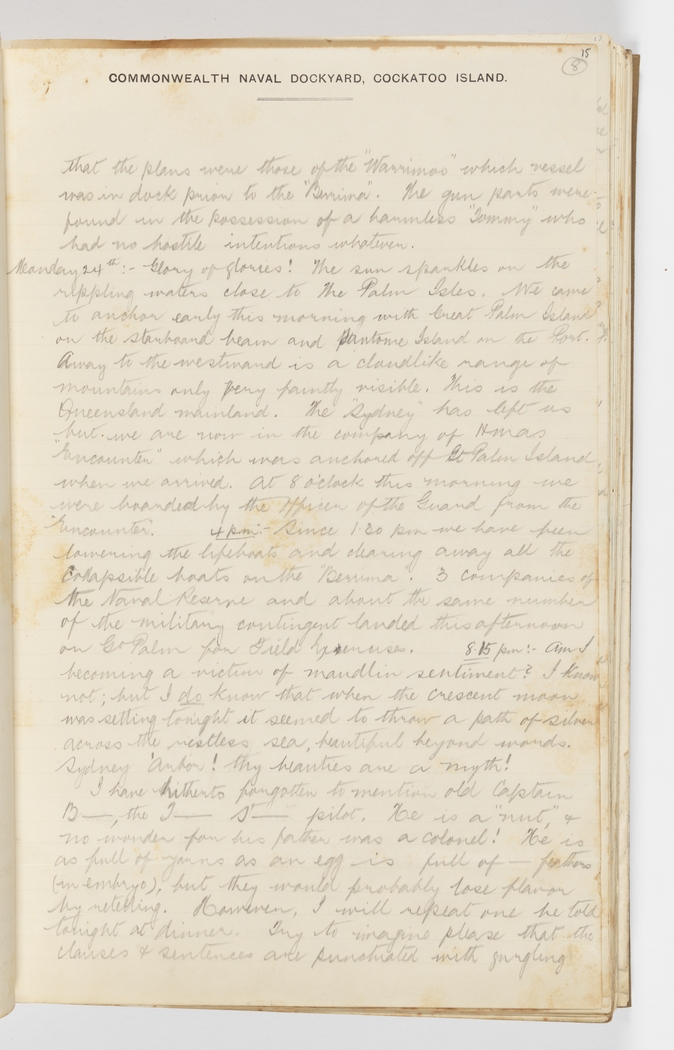 15
8
COMMONWEALTH NAVAL DOCKYARD, COCKATOO ISLAND.
that the plans were those of the "Warrimoo" which vessel
was in dock prior to the "Berrima". The gun parts were
found in the possession of a harmless "Tommy" who
had no hostile intentions whatever.
Monday 24th:- Glory of glories! The sun sparkles on the
rippling waters close to The Palm Isles. We came
to anchor early this morning with Great Palm Island
on the starboard beam and Fantome Island on the Port.
Away to the westward is a cloudlike range of
mountains only very faintly visible. This is the
Queensland mainland. The "Sydney" has left us
but we are now in the company of Hmas
"Encounter" which was anchored off Gt Palm Island
when we arrived. At 8 o'clock this morning we
were boarded by the Officer of the Guard from the
"Encounter". 4 pm:- Since 1.30 pm we have been
lowering the lifeboats and clearing away all the
collapsible boats on the "Berrima". 3 companies of
the Naval Reserve and about the same number
of the military contingent landed this afternoon
on Gt Palm for Field Exercises. 8.15 pm:- Am I
becoming a victim of maudlin sentiment? I know
not; but I do know that when the crescent moon
was setting tonight it seemed to throw a path of silver
across the restless sea, beautiful beyond words.
Sydney 'Arbor! thy beauties are a myth!
I have hitherto forgotten to mention old Captain
B—, the T— S— pilot. He is a "nut", &
no wonder for his father was a colonel! He is
as full of yarns as an egg is full of — feathers
(in embryo), but they would probably lose flavor
by retelling. However, I will repeat one he told
tonight at dinner. Try to imagine please that the
clauses & sentences are punctuated with gurgling